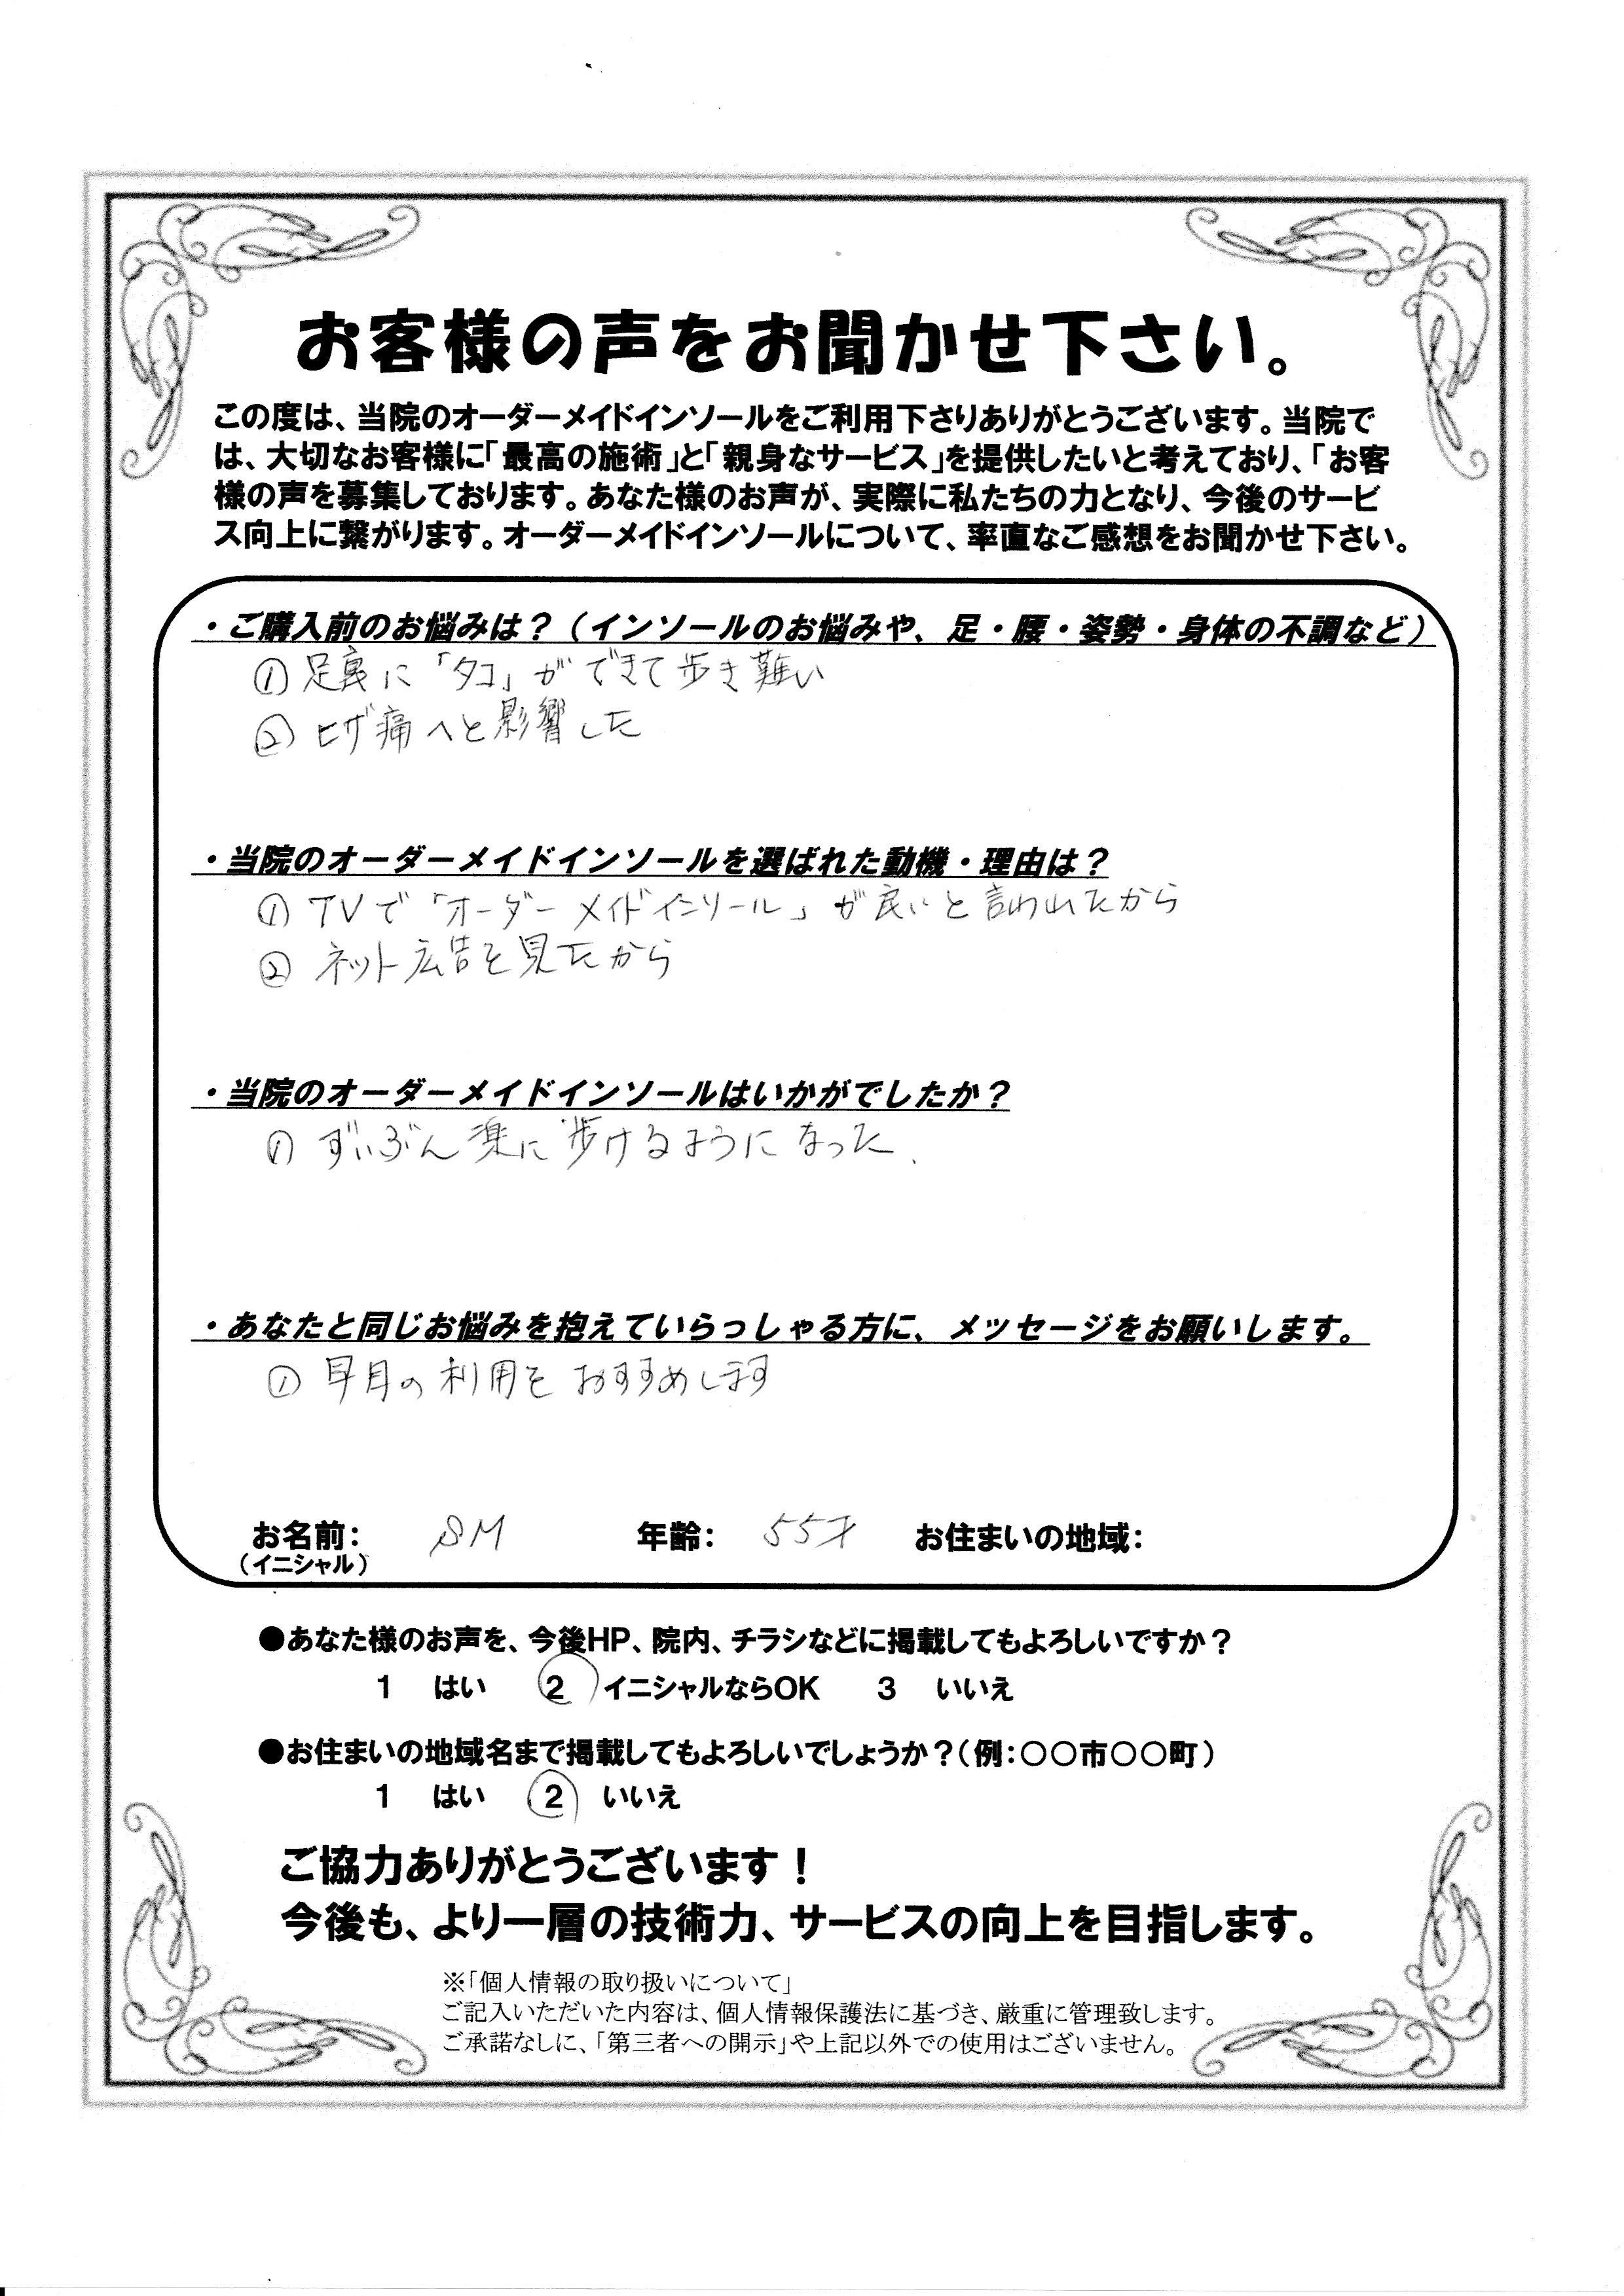 お客様の声をお聞かせ下さい。
この度は、当院のオーダーメイドインソールをご利用下さりありがとうございます。当院で
は、大切なお客様に「最高の施術」と「親身なサービス」を提供したいと考えており、「お客
様の声を募集しております。あなた様のお声が、実際に私たちの力となり、今後のサービ
ス向上に繋がります。オーダーメイドインソールについて、率直なご感想をお聞かせ下さい。
・ご購入前のお悩みは？（インソールのお悩みや、足・腰・姿勢・身体の不調など）
① 足裏に「タコ」ができて歩き難い
② ヒザ痛へと影響した
・当院のオーダーメイドインソールを選ばれた動機・理由は？
① TVで「オーダーメイドインソール」が良いと言われたから
② ネット広告を見たから
・当院のオーダーメイドインソールはいかがでしたか？
① ずいぶん楽に歩けるようになった.
・あなたと同じお悩みを抱えていらっしゃる方に、メッセージをお願いします。
① 早目の利用をおすすめします
お名前： SM 年齢： 55才 お住まいの地域：
（イニシャル）
●あなた様のお声を、今後HP、院内、チラシなどに掲載してもよろしいですか？
1 はい 2 イニシャルならOK 3 いいえ
●お住まいの地域名まで掲載してもよろしいでしょうか？（例：〇〇市〇〇町）
1 はい 2 いいえ
ご協力ありがとうございます！
今後も、より一層の技術力、サービスの向上を目指します。
※「個人情報の取り扱いについて」
ご記入いただいた内容は、個人情報保護法に基づき、厳重に管理致します。
ご承諾なしに、「第三者への開示」や上記以外での使用はございません。